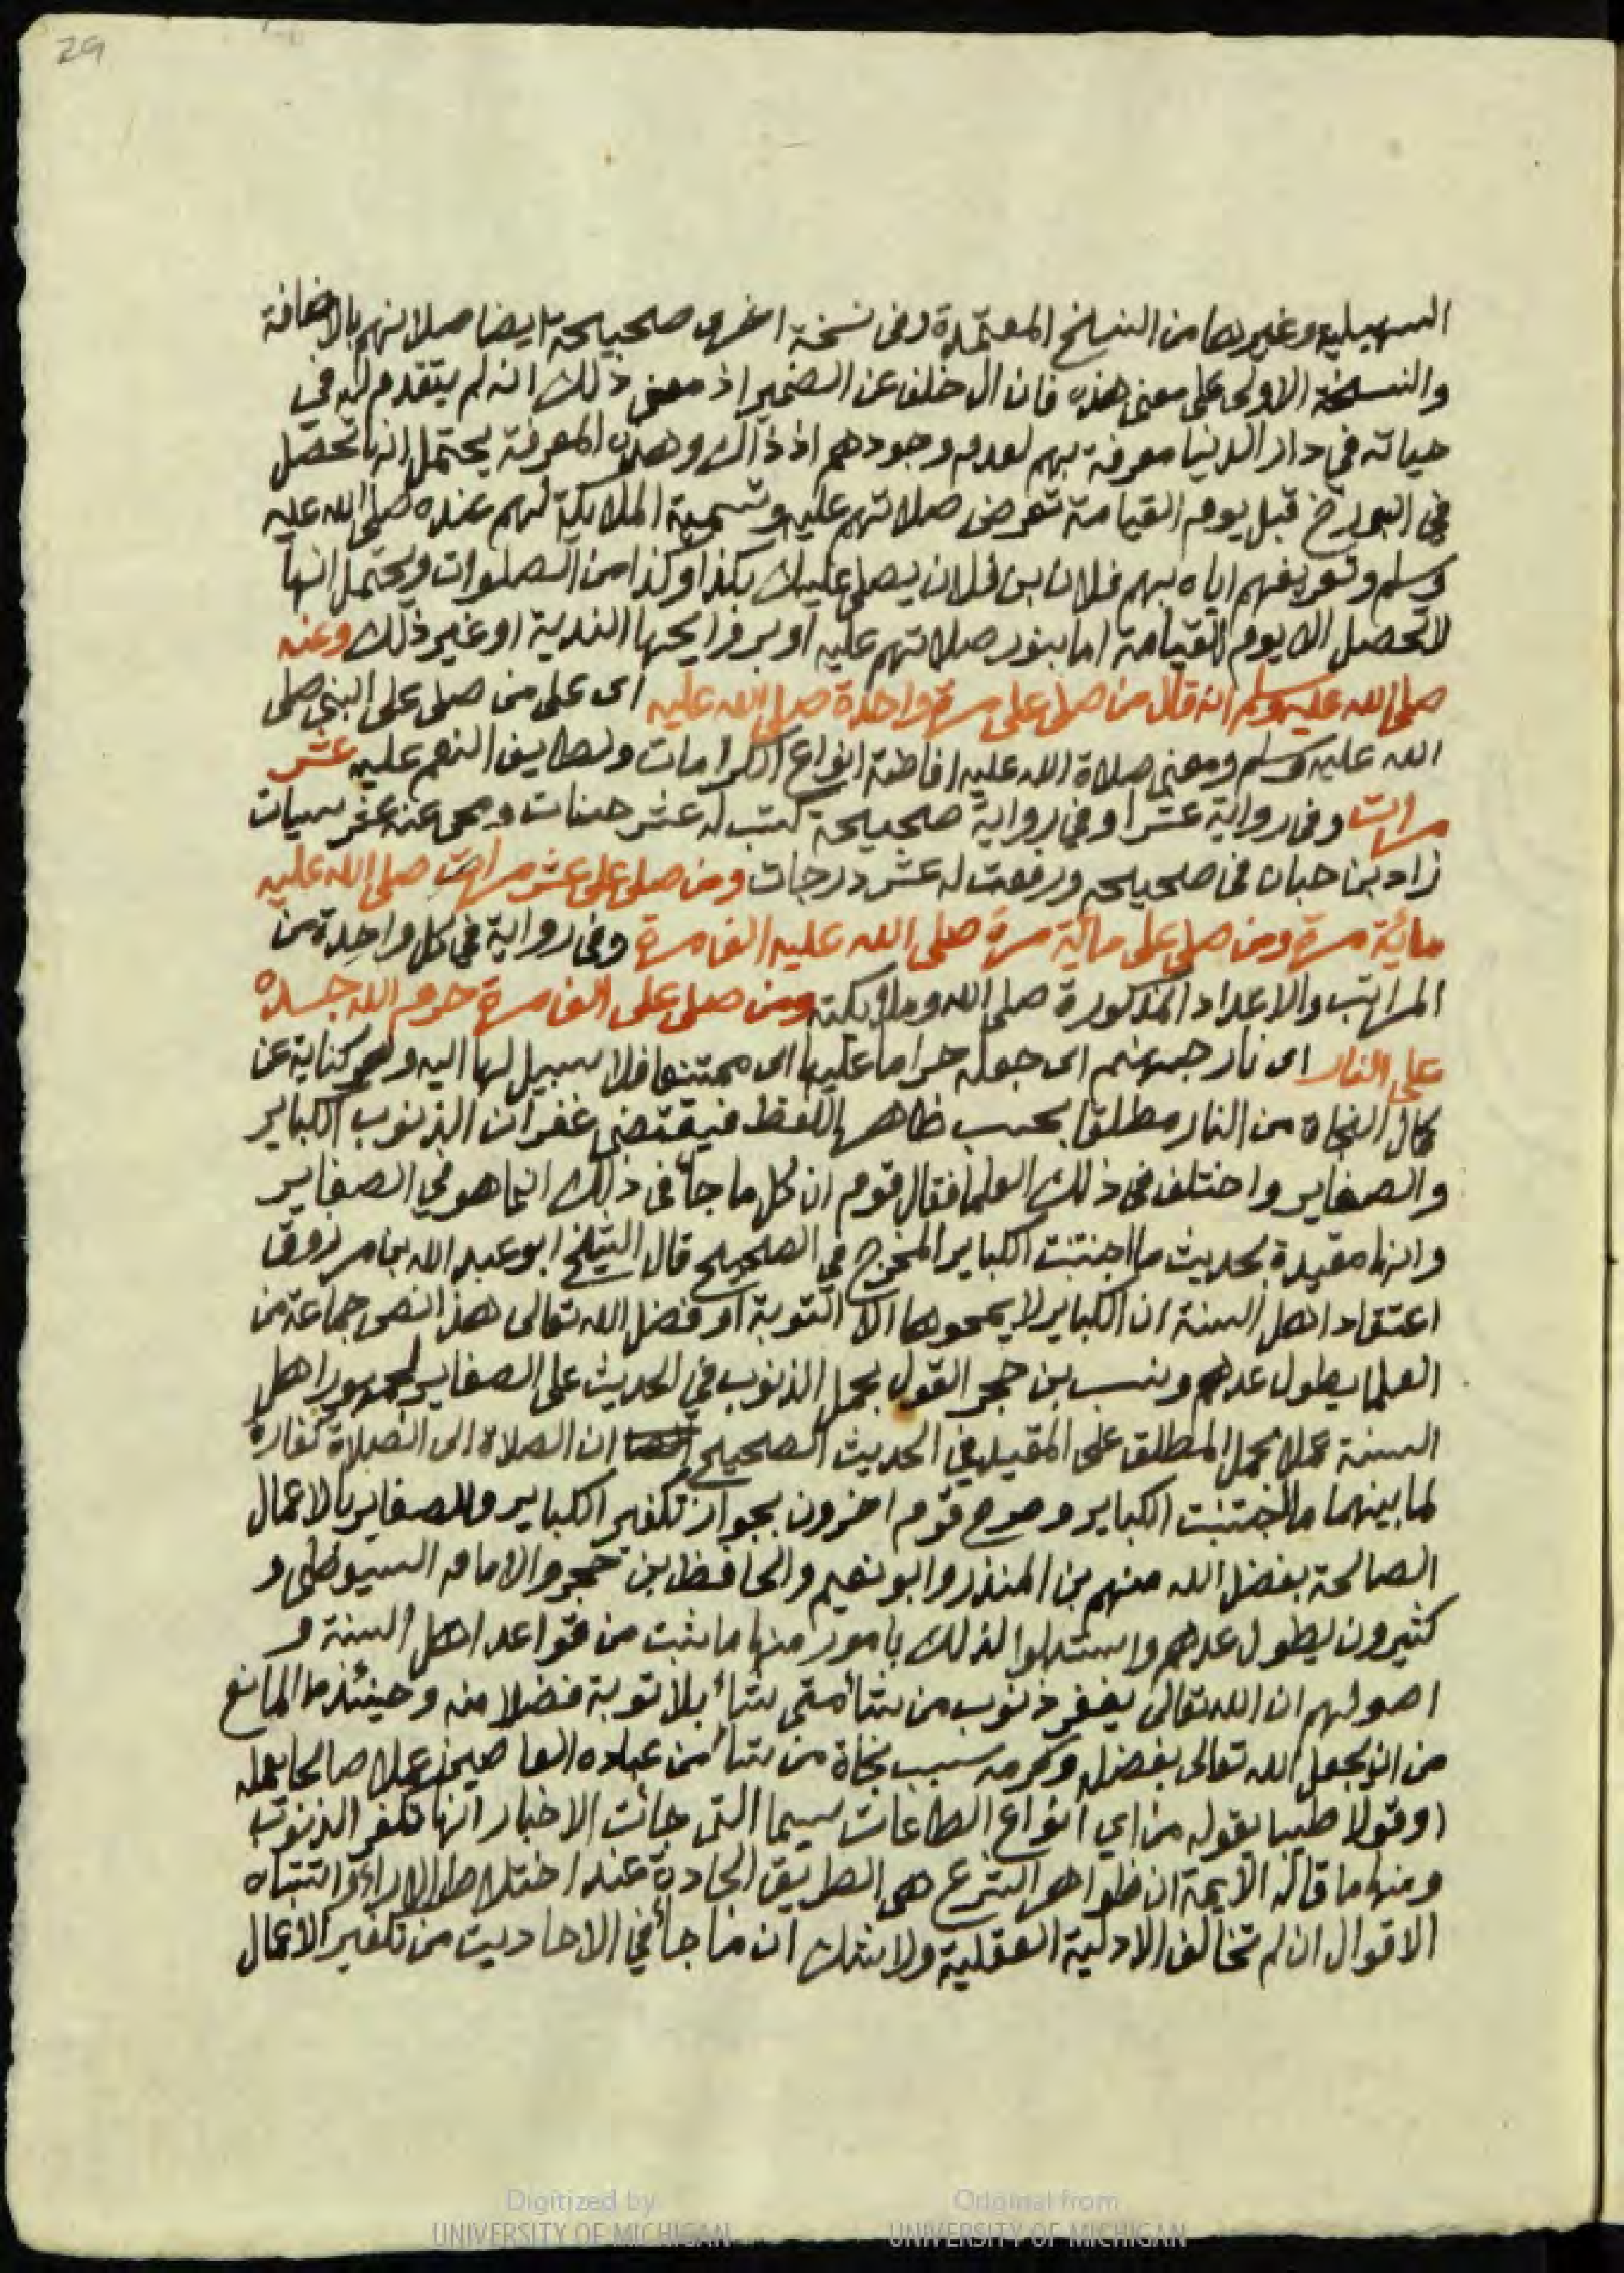 29
السهيلية وغيرها من النسخ المعتمدة وفى نسخة اخرى صحيحة ايضا صلاتهم بالاضافة
والنسخة الاولى على معنى هذه فان ال خلف عن الضمير اذ معنى ذلك انه لم يتقدم له في
حياته في دار الدنيا معرفة بهم لعدم وجودهم اذ ذاك وهذه المعرفة يحتمل انها تحصل
في البرزخ قبل يوم القيامة تعرض صلاتهم عليه وتسمية الملايكة لهم عنده صلى الله عليه
وسلم وتعريفهم اياه بهم فلان بن فلان يصلى عليك بكذا وكذا من الصلوات ويحتمل انها
لا تحصل الا يوم القيامة اما بنور صلاتهم عليه او بروايحها الندية او غير ذلك وعنه
صلى الله عليه وسلم انه قال من صلى على مرة واحدة صلى الله عليه اى على من صلى على النبي صلى
الله عليه وسلم ومعنى صلاة الله عليه افاضة انواع الكرامات ولطايف النعم عليه عشر
مرات وفى رواية عشرا وفي رواية صحيحة كتب له عشر حسنات ومحى عنه عشر سيات
زاد بن حبان فى صحيحه ورفعت له عشر درجات ومن صلى على عشر مرات صلى الله عليه
مائة مرة ومن صلى على مائة مرة صلى الله عليه الف مرة وفى رواية في كل واحدة من
المراتب والاعداد المذكورة صلى الله وملايكته ومن صلى على الف مرة حرم الله جسده
على النار اى نار جهنم اى جعله حراما عليها اى ممتنعا فلا سبيل لها اليه وهو كناية عن
كمال النجاة من النار مطلقا بحسب ظاهر اللفظ فيقتضى غفران الذنوب الكباير
والصغاير واختلف فى ذلك العلما فقال قوم ان كل ما جأ فى ذلك انما هو في الصغاير
وانها مقيدة بحديث ما اجتنبت الكباير المخرج في الصحيح قال الشيخ ابو عبد الله بن مرزوق
اعتقاد اهل السنة ان الكباير لا يمحوها الا التوبة او فضل الله تعالى هذا نص جماعة من
العلما يطول عدهم ونسب بن حجر القول بحمل الذنوب في الحديث على الصغاير لجمهور اهل
السنة عملا بحمل المطلق على المقيد في الحديث الصحيح ان الصلاة الى الصلاة كفارة
لما بينهما ما اجتنبت الكباير وصرح قوم اخرون بجواز تكفير الكباير والصغاير بالاعمال
الصالحة بفضل الله منهم بن المنذر وابو نعيم والحافظ بن حجر والامام السيوطى و
كثيرون يطول عدهم واستدلوا لذلك بامور منها ما ثبت من قواعد اهل السنة و
اصولهم ان الله تعالى يغفر ذنوب من شأ متى شأ بلا توبة فضلا منه وحينئذ ما المانع
من ان يجعل الله تعالى بفضله وكرمه سبب نجاة من شأ من عباده العاصين عملا صالحا يعمله
او قولا طيبا يقوله من اي انواع الطاعات سيما التى جائت الاخبار انها تكفر الذنوب
ومنها ما قاله الايمة ان ظواهر الشرع هى الطريق الجادة عند اختلاط الاراء واشتباه
الاقوال ان لم تخالف الادلية العقلية ولا شك ان ما جأ في الاحاديث من تكفير الاعمال
Digitized by
UNIVERSITY OF MICHIGAN
Original from
UNIVERSITY OF MICHIGAN